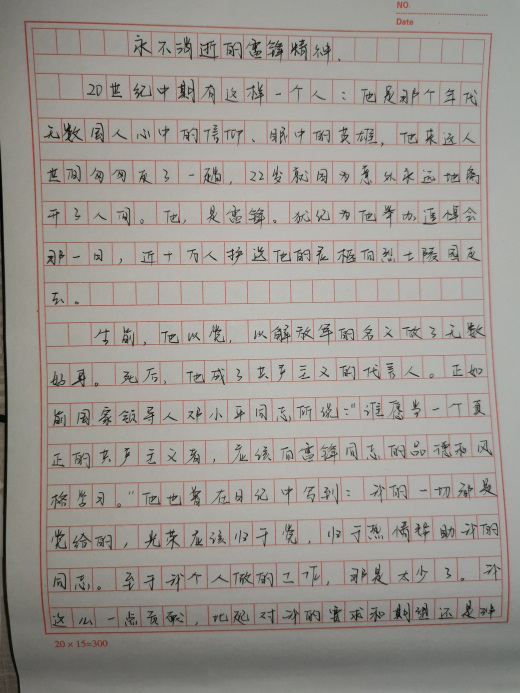 NO
Date
永不消逝的雷锋精神.
20世纪中期有这样一个人：他是那个年代
无数国人心中的信仰、眼中的英雄，他来这人
世间匆匆反了一趟，22岁就因为意外永远地离
开了人间。他，是雷锋。犹记为他举办追悼会
那一日，近十万人护送他的灵柩向烈士陵园反
去。
生前，他以党，以解放军的名义做了无数
好事。死后，他成了共产主义的代言人。正如
前国家领导人邓小平同志所说："谁愿当一个真
正的共产主义者，应该向雷锋同志的品德和风
格学习。"他也曾在日纪中写到：我的一切都是
党给的，光荣应该归于党，归于热情帮助我的
同志。至于我个人做的工作，那是太少了。我
这么一点贡献，比起对我的要求和期望还是
20×15=300